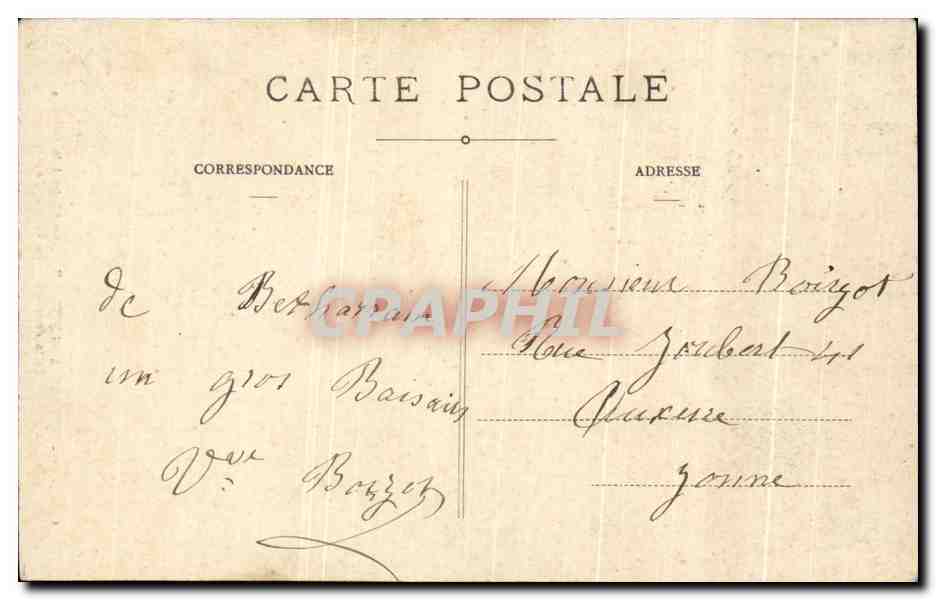 CARTE POSTALE
CORRESPONDANCE
ADRESSE
de Betharram
un gros Baisais
Vve Boizot
Monsieur Boizot
Rue Joubert 41
Auxerre
Yonne
CPAPHIL